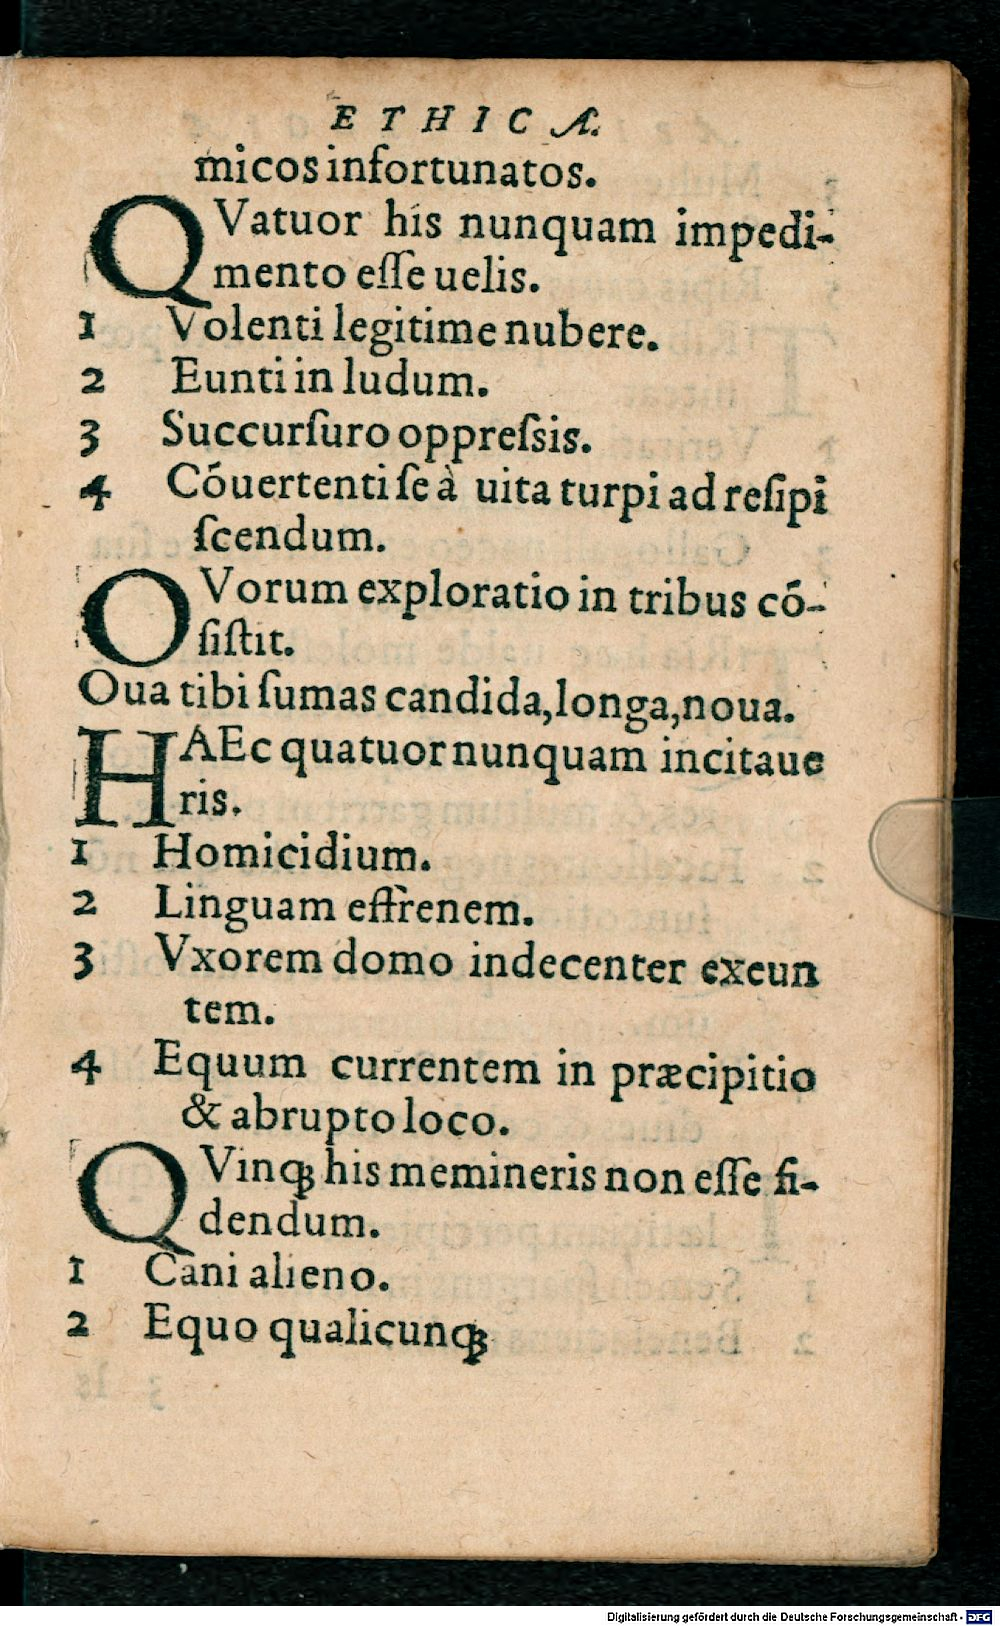 ETHICA.
micos infortunatos.
QVatuor his nunquam impedi-
mento eſſe uelis.
1 Volenti legitime nubere.
2 Eunti in ludum.
3 Succurſuro oppreſsis.
4 Cōuertenti ſe à uita turpi ad reſipi
ſcendum.
OVorum exploratio in tribus cō-
ſiſtit.
Oua tibi ſumas candida, longa, noua.
HAEc quatuor nunquam incitaue
ris.
1 Homicidium.
2 Linguam effrenem.
3 Vxorem domo indecenter exeun
tem.
4 Equum currentem in præcipitio
& abrupto loco.
QVinqꝫ his memineris non eſſe fi-
dendum.
1 Cani alieno.
2 Equo qualicunqꝫ
Digitalisierung gefördert durch die Deutsche Forschungsgemeinschaft - DFG